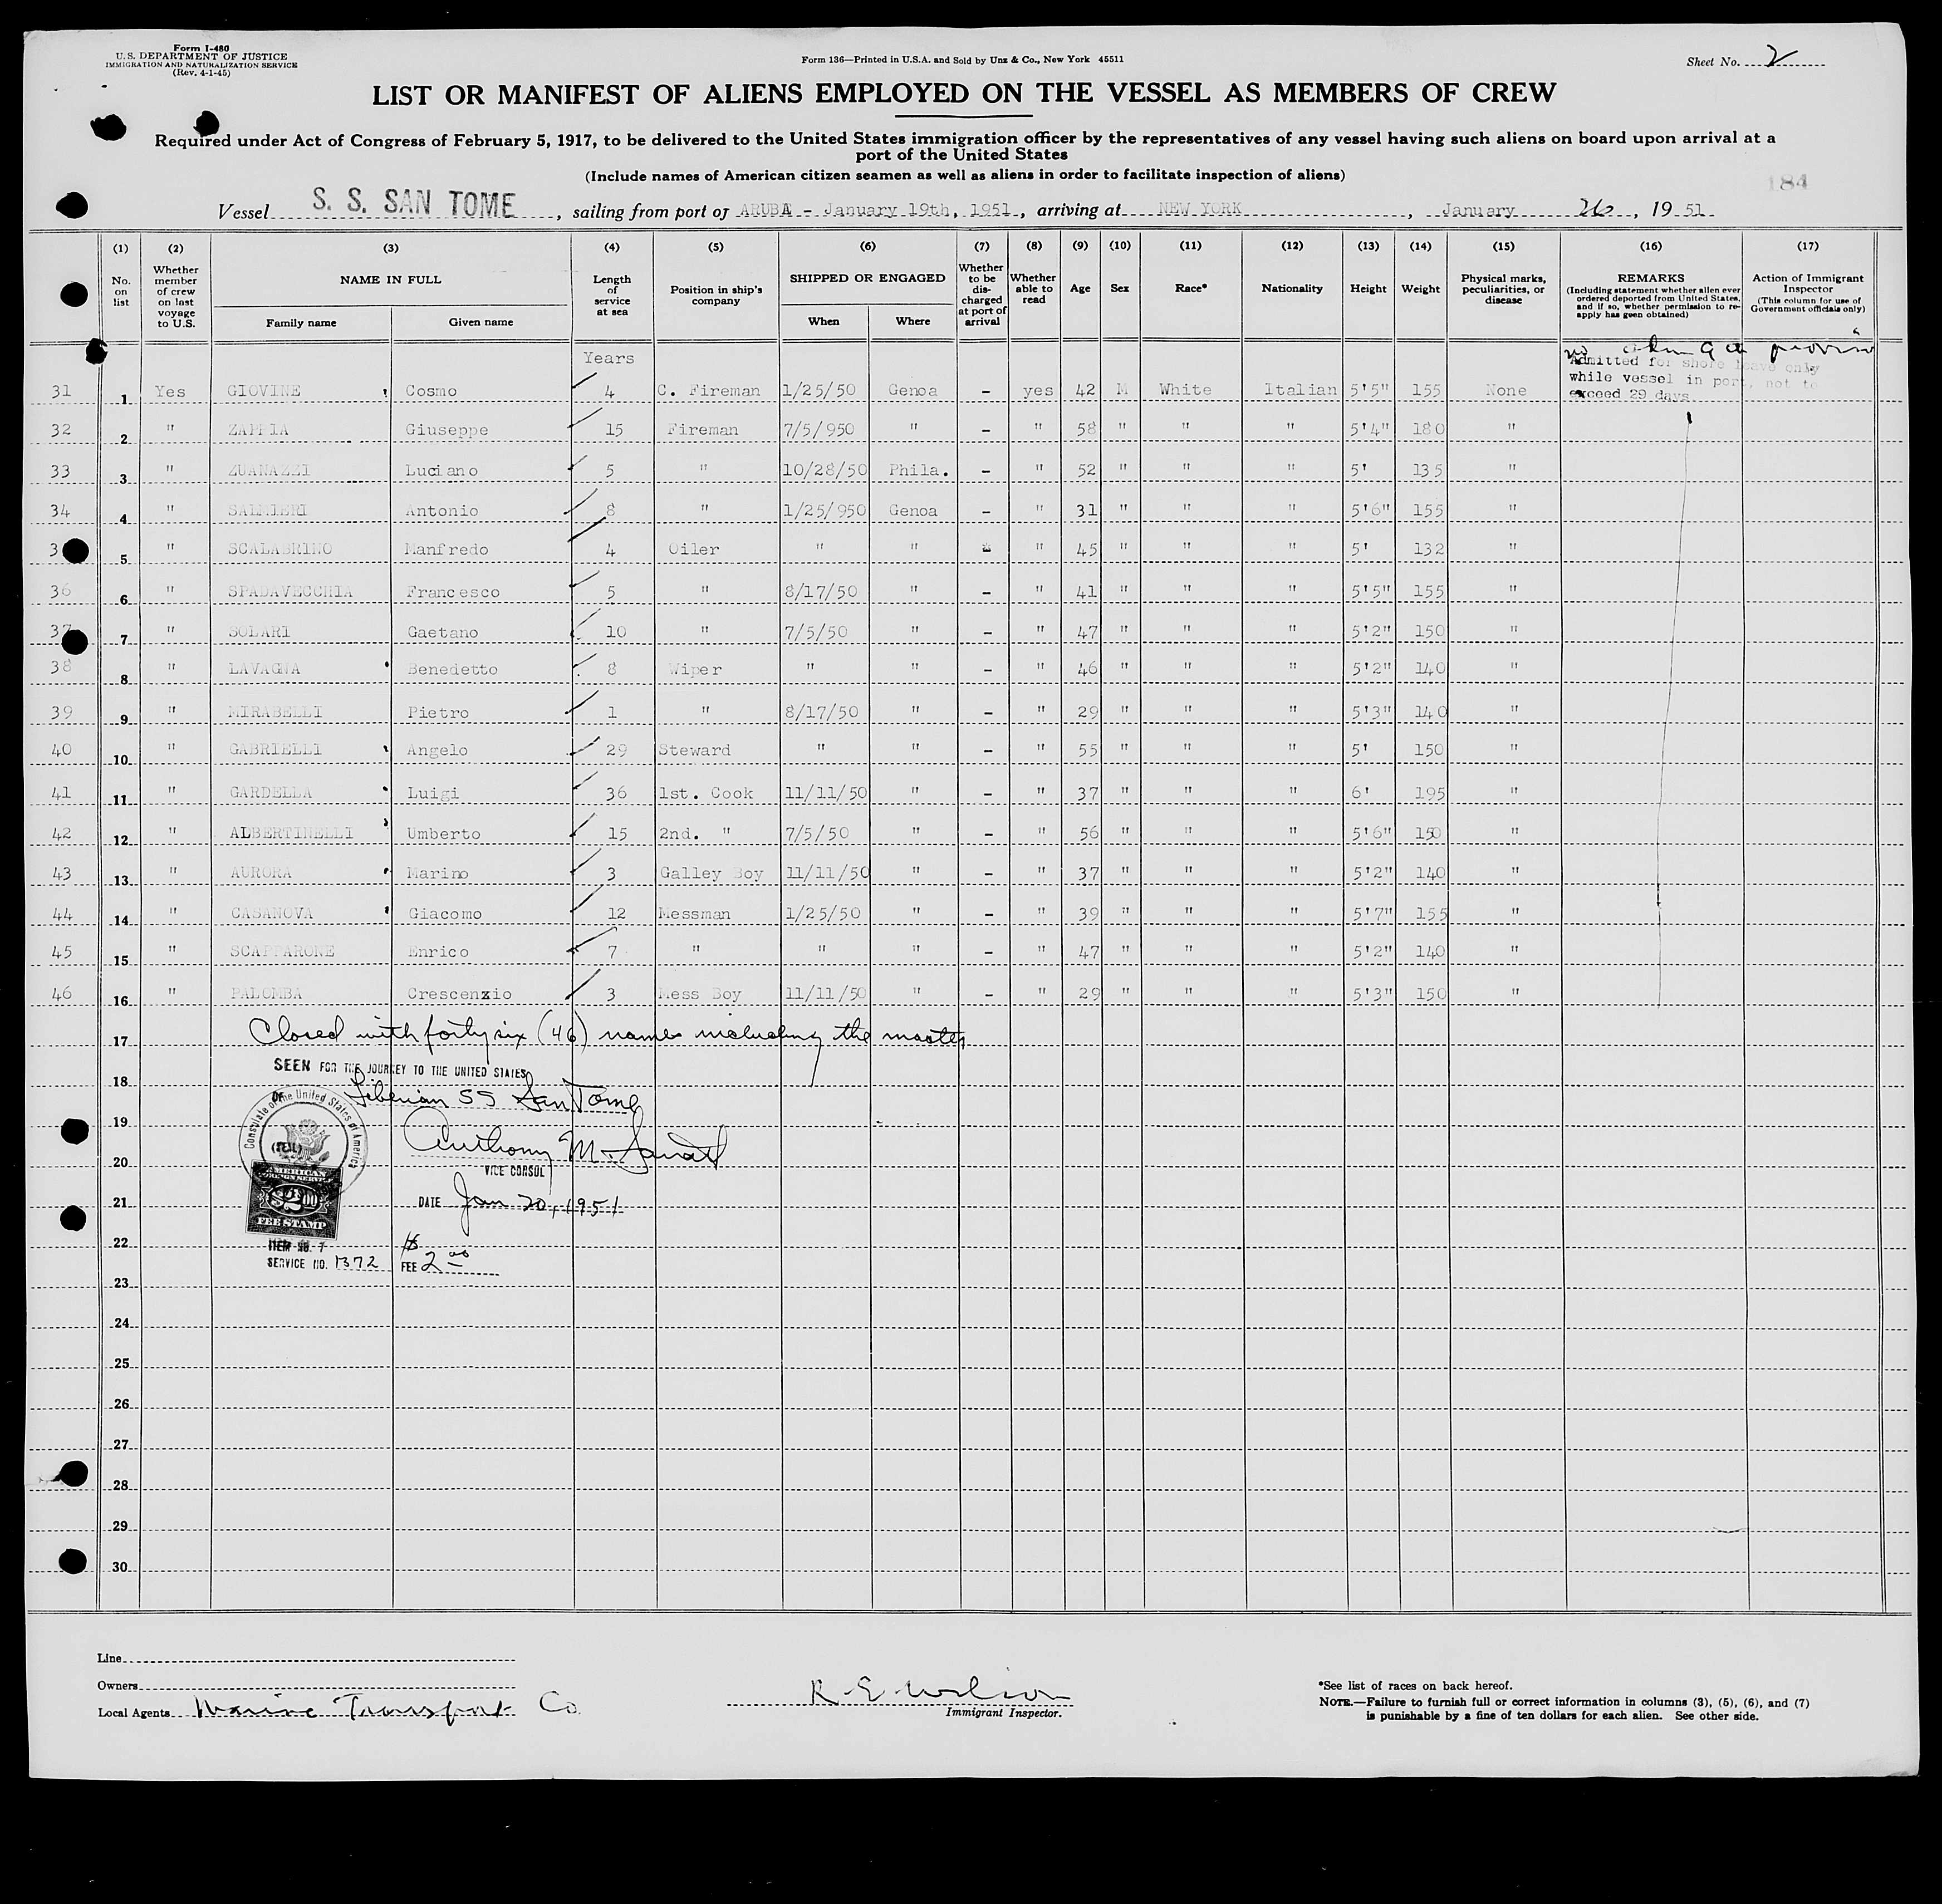 Form I-480
U. S. DEPARTMENT OF JUSTICE
IMMIGRATION AND NATURALIZATION SERVICE
(Rev. 4-1-45)
Form 136—Printed in U.S.A. and Sold by Unz & Co., New York 45511
Sheet No. 2
LIST OR MANIFEST OF ALIENS EMPLOYED ON THE VESSEL AS MEMBERS OF CREW
Required under Act of Congress of February 5, 1917, to be delivered to the United States immigration officer by the representatives of any vessel having such aliens on board upon arrival at a
port of the United States
(Include names of American citizen seamen as well as aliens in order to facilitate inspection of aliens)
184
Vessel S. S. SAN TOME, sailing from port of ARUBA - January 19th, 1951, arriving at NEW YORK, January 26, 19 51
(1) (2) (3) (4) (5) (6) (7) (8) (9) (10) (11) (12) (13) (14) (15) (16) (17)
No. on list
Whether member of crew on last voyage to U.S.
NAME IN FULL
Family name
Given name
Length of service at sea
Position in ship's company
SHIPPED OR ENGAGED
When
Where
Whether to be discharged at port of arrival
Whether able to read
Age
Sex
Race*
Nationality
Height
Weight
Physical marks, peculiarities, or disease
REMARKS
(Including statement whether alien ever ordered deported from United States, and if so, whether permission to re-apply has geen obtained)
Action of Immigrant Inspector
(This column for use of Government officials only)
Years
Admitted for shore leave only
while vessel in port, not to
exceed 29 days
31 1 Yes GIOVINE Cosmo 4 C. Fireman 1/25/50 Genoa - yes 42 M White Italian 5'5" 155 None
32 2 " ZAPPIA Giuseppe 15 Fireman 7/5/950 " - " 58 " " " 5'4" 180 "
33 3 " ZUANAZZI Luciano 5 " 10/28/50 Phila. - " 52 " " " 5' 135 "
34 4 " SALMIERI Antonio 8 " 1/25/950 Genoa - " 31 " " " 5'6" 155 "
3 5 " SCALABRINO Manfredo 4 Oiler " " " 45 " " " 5' 132 "
36 6 " SPADAVECCHIA Francesco 5 " 8/17/50 " - " 41 " " " 5'5" 155 "
37 7 " SOLARI Gaetano 10 " 7/5/50 " - " 47 " " " 5'2" 150 "
38 8 " LAVAGNA Benedetto 8 Wiper " " - " 46 " " " 5'2" 140 "
39 9 " MIRABELLI Pietro 1 " 8/17/50 " - " 29 " " " 5'3" 140 "
40 10 " GABRIELLI Angelo 29 Steward " " - " 55 " " " 5' 150 "
41 11 " GARDELLA Luigi 36 1st. Cook 11/11/50 " - " 37 " " " 6' 195 "
42 12 " ALBERTINELLI Umberto 15 2nd. " 7/5/50 " - " 56 " " " 5'6" 150 "
43 13 " AURORA Marino 3 Galley Boy 11/11/50 " - " 37 " " " 5'2" 140 "
44 14 " CASANOVA Giacomo 12 Messman 1/25/50 " - " 39 " " " 5'7" 155 "
45 15 " SCAPPARONE Enrico 7 " " " - " 47 " " " 5'2" 140 "
46 16 " PALOMBA Crescenzio 3 Mess Boy 11/11/50 " - " 29 " " " 5'3" 150 "
17 Closed with forty six (46) names including the master
SEEN FOR THE JOURNEY TO THE UNITED STATES
18
OF Liberian SS San Tome
Consulate of the United States of America
(SEAL)
19
Anthony M.
20
VICE CONSUL
AMERICAN
FOREIGN SERVICE
$2.00
FEE STAMP
21
DATE Jan 20, 1951
22
ITEM NO. 7
SERVICE NO. 1372
FEE $2.00
23
24
25
26
27
28
29
30
Line
Owners
Local Agents Marine Transport Co.
R E Wilson
Immigrant Inspector.
*See list of races on back hereof.
NOTE.—Failure to furnish full or correct information in columns (3), (5), (6), and (7)
is punishable by a fine of ten dollars for each alien. See other side.